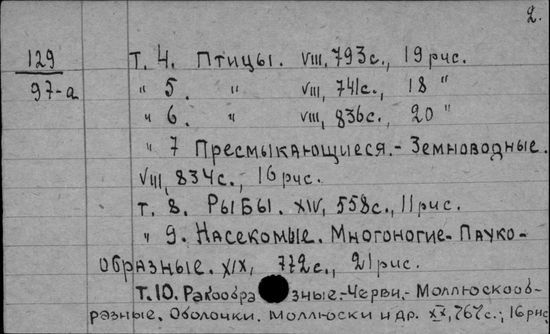 2.
129 Т. 4. Птицы. VIII, 793 с., 19 рис.
97-а " 5. " VIII, 741 с., 18 "
" 6. " VIII, 836 с., 20 "
" 7 Пресмыкающиеся.- Земноводные.
VIII, 834 с., 16 рис.
Т. 8. Рыбы. XIV, 558 с., 11 рис.
" 9. Насекомые. Многоногие- Пауко-
образные. XIX, 772 с., 21 рис.
Т. 10. Ракообразные.-Черви.- Моллюскооб-
разные. Оболочки. Моллюски и др. XX, 767 с., 16 рис